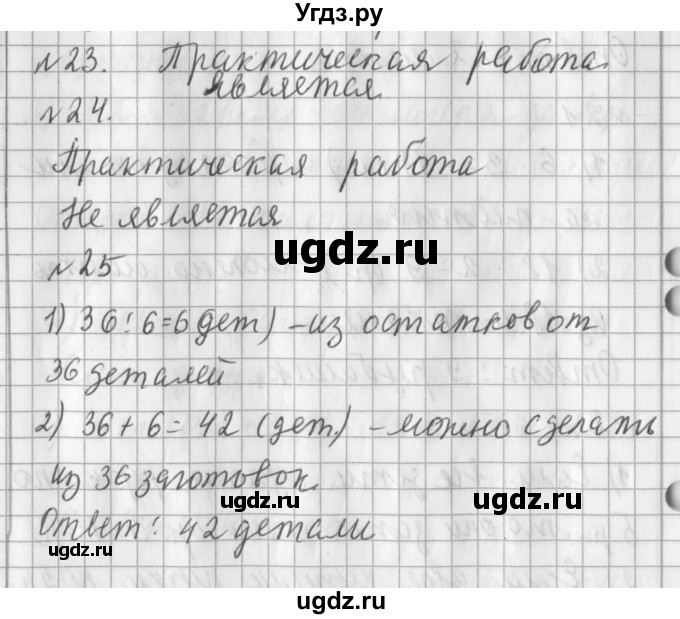 Угдз.ру
№23. Практическая работа.
является
№24.
Практическая работа
Не является
ugdz.ru
№25
1) 36:6=6 дет) -из остатков от
36 деталей
2) 36+6=42 (дет) -можно сделать
из 36 заготовок.
ugdz.ru
ugdz.ru
Ответ: 42 детали
ugdz.ru
ugdz.ru